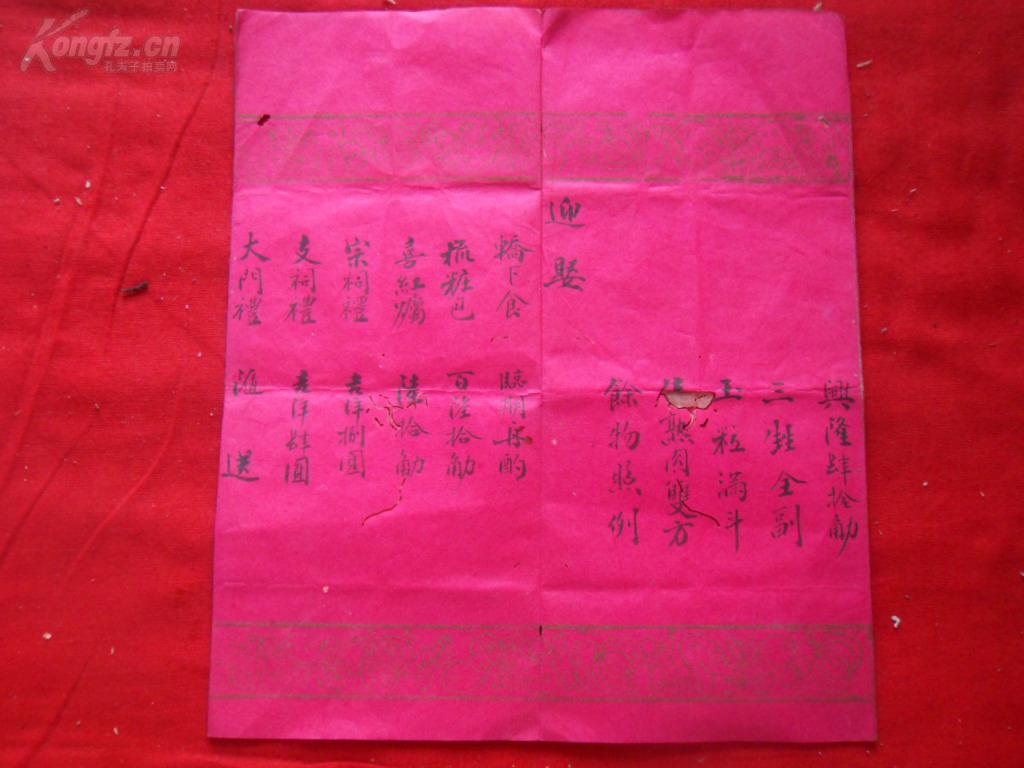 興隆肆拾觔
三牲全副
玉粒滿斗
熟肉雙方
餘物照例
迎娶
轎下食 臨期采酌
梳粧包 百陸拾觔
喜紅燭 陸拾觔
宗祠禮 吉洋捌圓
支祠禮 吉洋肆圓
大門禮 滙送
Kongfz.cn
孔夫子拍卖网